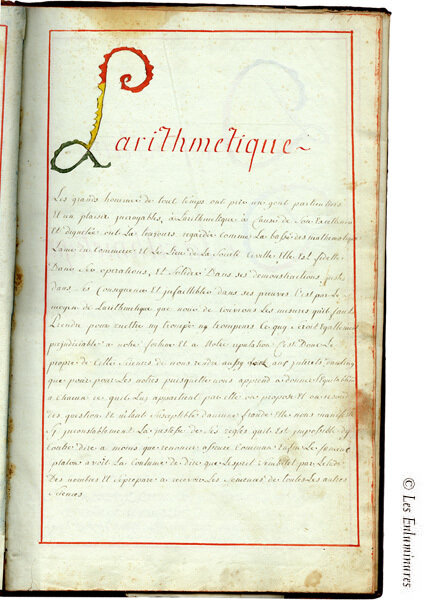 Larithmetique~
Les grands hommes de tout temps ont pris un gout particuliers
Et un plaisir incroyable, a Larithmetique a Cause de Son Excellence
Et dignetée ont La toujours regardée comme La basse des mathematiques
Lame du Commerce Et Le Lien de La Societé Civille, Elle Est fidelle
Dans Ses operations, Et Solides Dans Ses demonstractions, juste
dans Ses Consequences Et jnfaillibles dans ses preuves. C'est par Le
moyen de Larithmetique que nous
Prendre pour mettre ny trompé ny trompeurs Ce quy Seroit Egallement
prejudiciable a notre fortune Et a Notre reputation C'est Donc Le
propre de Cette Sciences de nous rendre aussy
que pour pour Les notres puisquelle nous apprend a donner
a Chacun Ce quil Luy appartient par elle on propose Et on
des question Et nétant Susceptible daucune fraude Elle nous
Sy La justesse de Ses regles quil Est impossible dy
Contre dire a moins que renoncer au Sens Commun Enfin Le Savant
platon avoit La Coutume de dire que Lesprit Embellit par Letude
Des nombres Et Se prepare a recevoir Les Semences de toutes Les autres
Sciences
© Les Enluminures